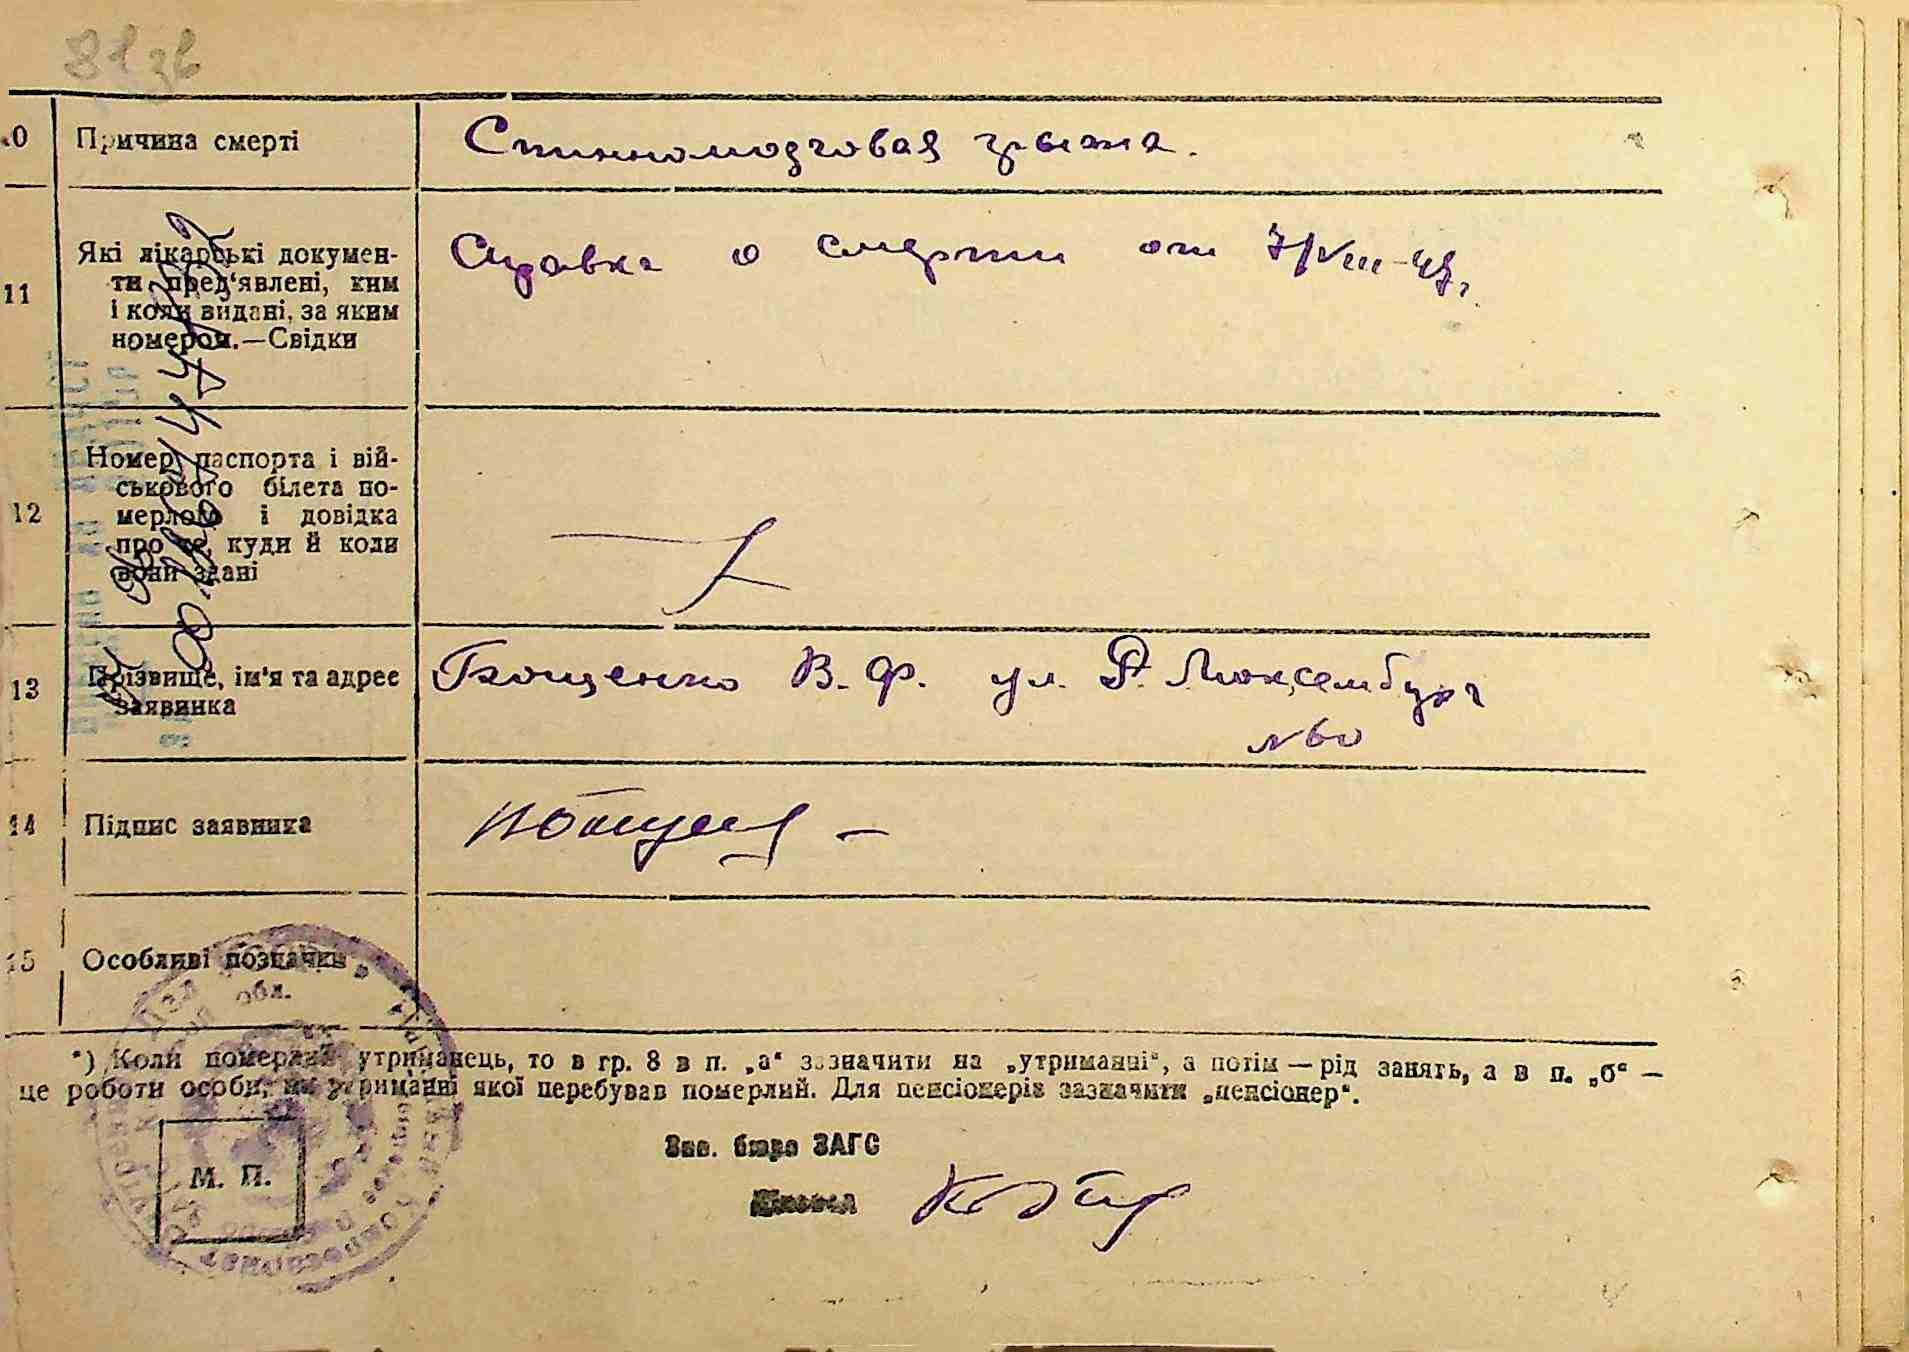 81 зв
10 Причина смерті Спинномозговая грыжа.
11 Які лікарські докумен-
ти пред'явлені, ким
і коли видані, за яким
номером.—Свідки
Справка о смерти от 7/VIII-47г.
12 Номер паспорта і вій-
ськового білета по-
мерлого і довідка
про те, куди й коли
вони здані
13 Прізвище, ім'я та адрес
заявника
В. Ф. ул. Р. Люксембург
№60
14 Підпис заявника
15 Особливі позначки
обл.
*) Коли померлий утриманець, то в гр. 8 в п. „а“ зазначити на „утриманні“, а потім — рід занять, а в п. „б“ —
це роботи особи, на утриманні якої перебував померлий. Для пенсіонерів зазначити „пенсіонер“.
Зав. бюро ЗАГС
М. П.